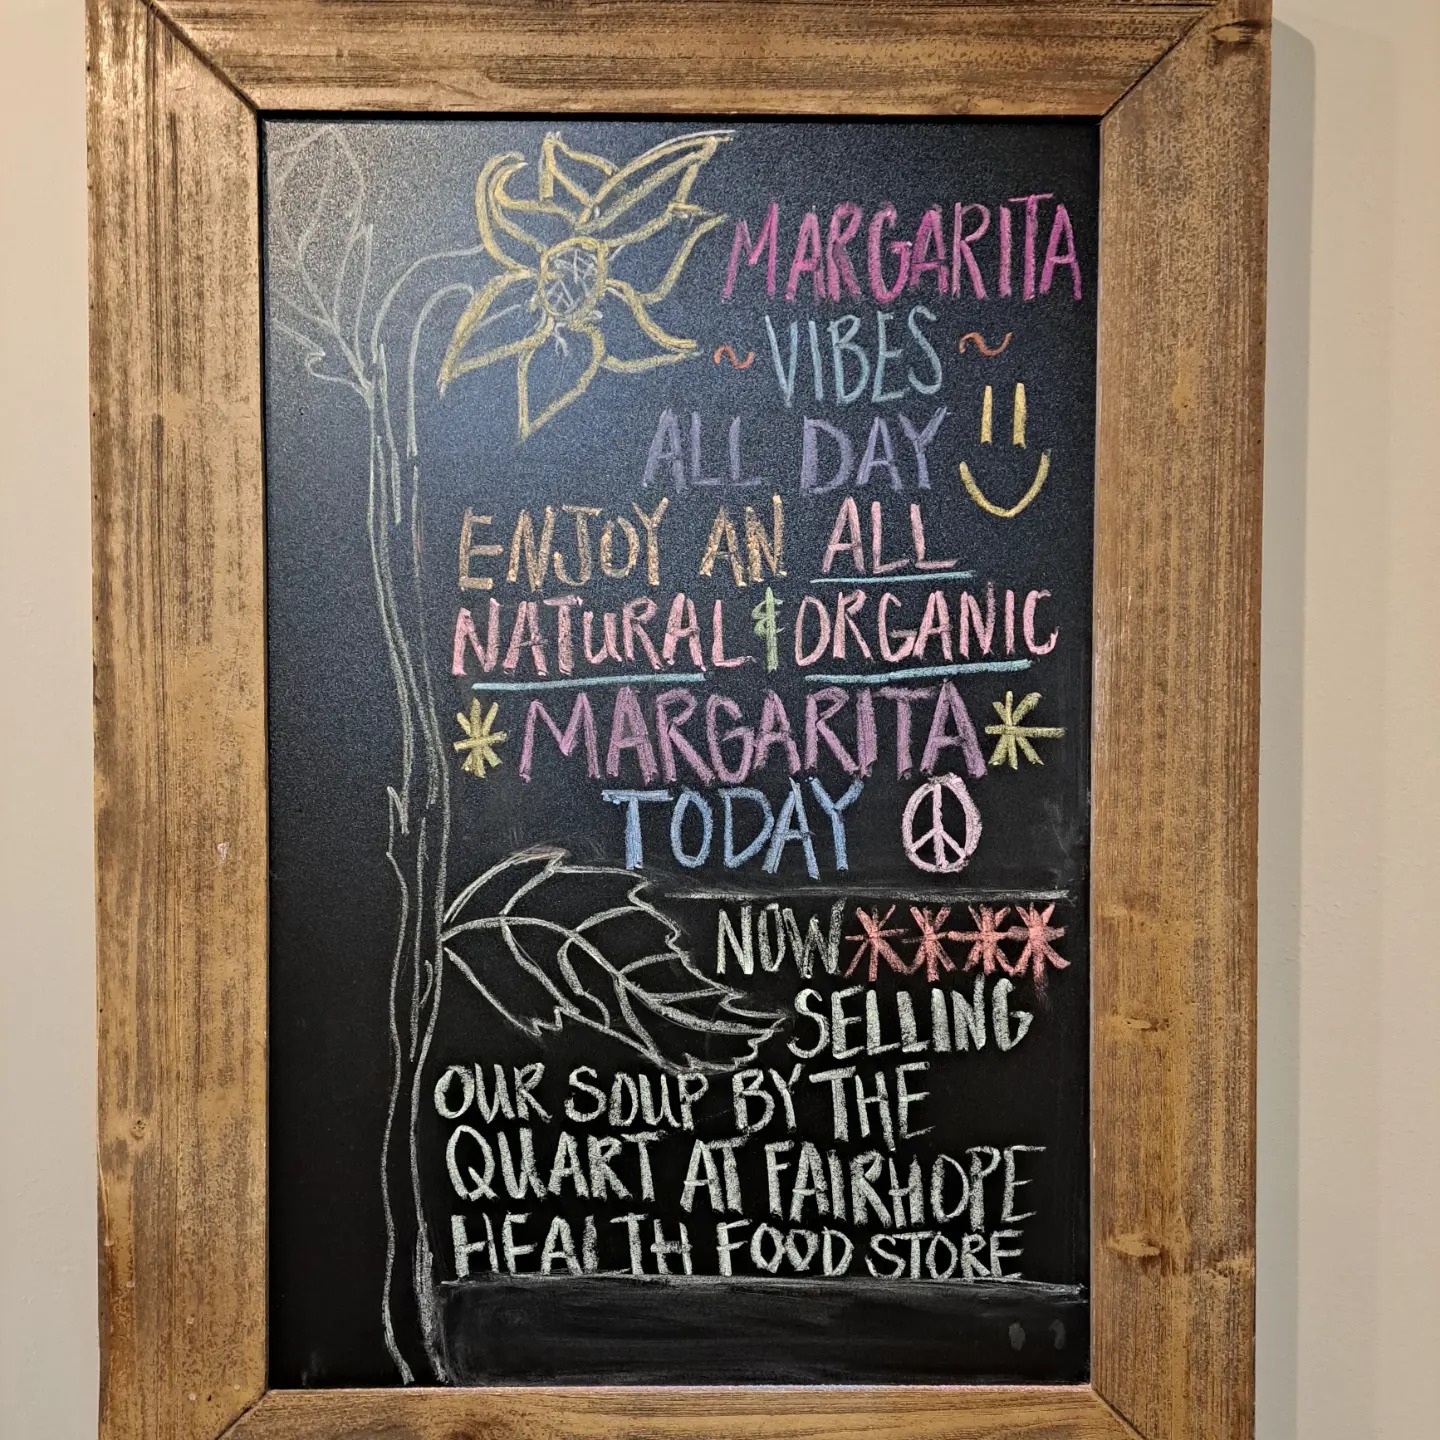 MARGARITA
~ VIBES ~
ALL DAY
ENJOY AN ALL
NATURAL & ORGANIC
* MARGARITA *
TODAY
NOW ****
SELLING
OUR SOUP BY THE
QUART AT FAIRHOPE
HEALTH FOOD STORE